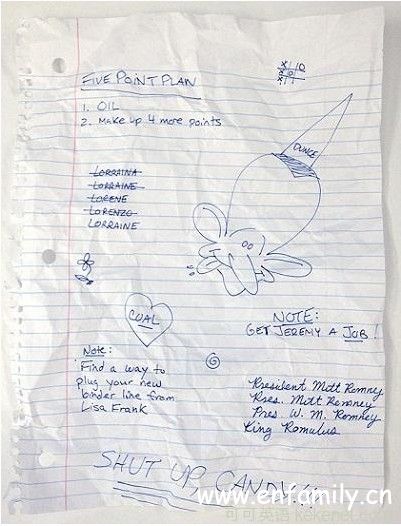 FIVE POINT PLAN
1. OIL
2. Make up 4 more points
DUNCE
LORRAINA
LORRAINE
LORENE
LORENZO
LORRAINE
COAL
NOTE:
GET JEREMY A JOB!
Note:
Find a way to
plug your new
binder line from
Lisa Frank
President Mitt Romney
Pres. Mitt Romney
Pres. W. M. Romney
King Romulus
SHUT UP, CANDY!!!
www.enfamily.cn